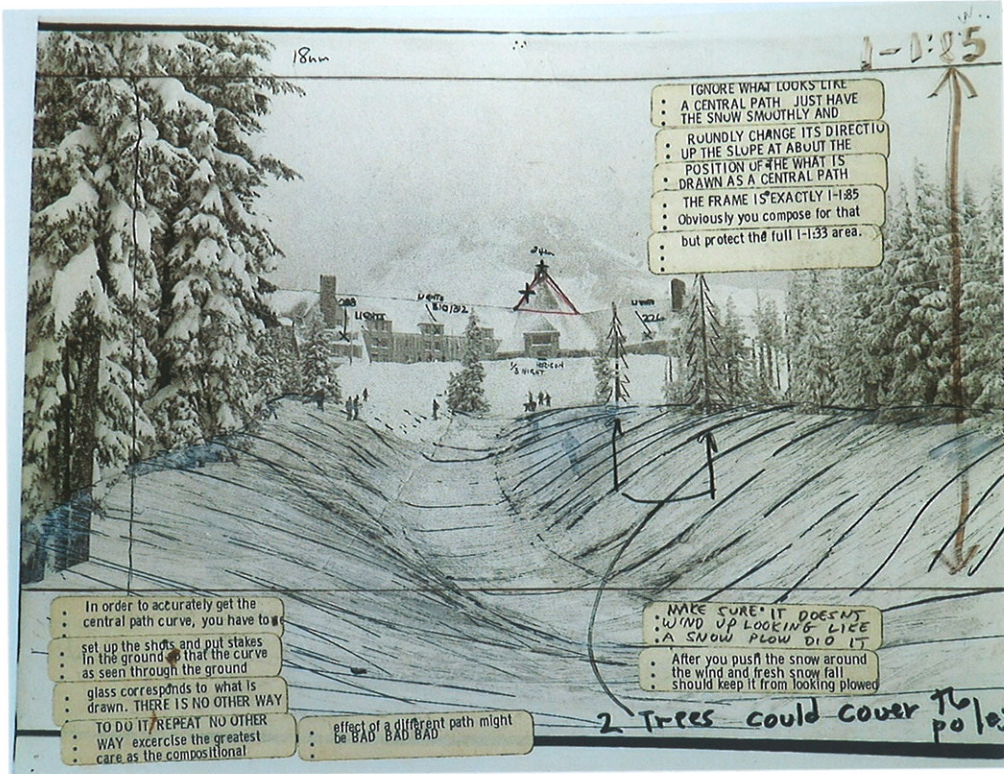 18mm
1-1:85
IGNORE WHAT LOOKS LIKE
A CENTRAL PATH JUST HAVE
THE SNOW SMOOTHLY AND
ROUNDLY CHANGE ITS DIRECTIO
UP THE SLOPE AT ABOUT THE
POSITION OF THE WHAT IS
DRAWN AS A CENTRAL PATH
THE FRAME IS EXACTLY 1-1:85
Obviously you compose for that
but protect the full 1-1:33 area.
LIGHTS
LIGHTS
LIGHTS
HORIZON
NIGHT
In order to accurately get the
central path curve, you have to
set up the shots and put stakes
in the ground so that the curve
as seen through the ground
glass corresponds to what is
drawn. THERE IS NO OTHER WAY
TO DO IT REPEAT NO OTHER
WAY excercise the greatest
care as the compositional
effect of a different path might
be BAD BAD BAD
MAKE SURE IT DOESNT
WIND UP LOOKING LIKE
A SNOW PLOW DID IT
After you push the snow around
the wind and fresh snow fall
should keep it from looking plowed
2 Trees could cover